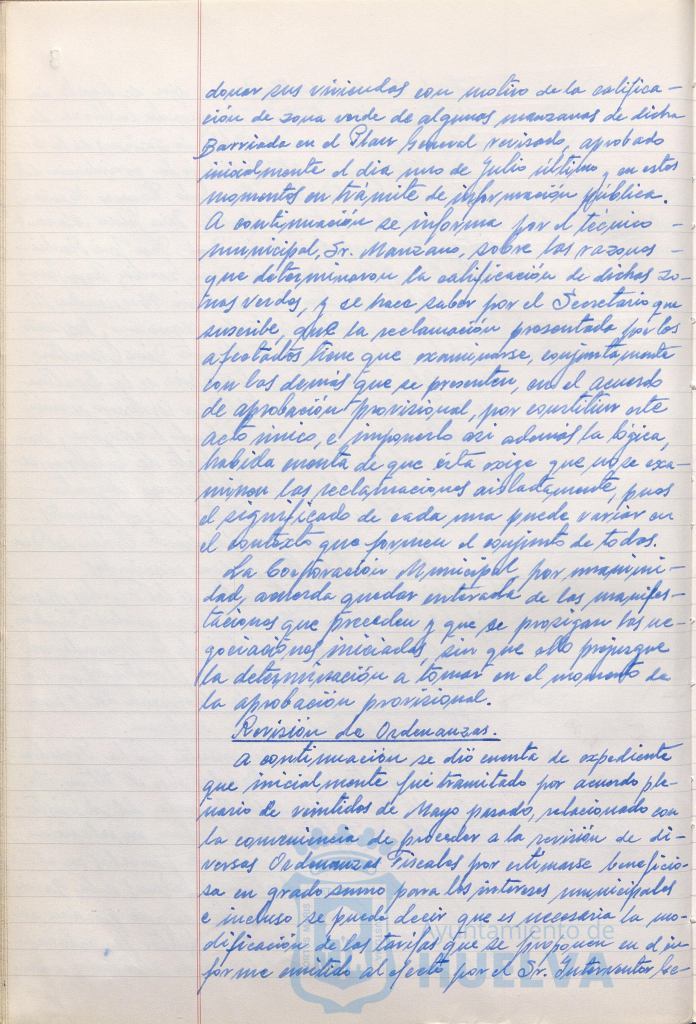 donar sus viviendas con motivo de la califica-
ción de zona verde de algunas manzanas de dicha
Barriada en el Plan General revisado, aprobado
inicialmente el dia uno de Julio último y en estos
momentos en trámite de información pública.
A continuación se informa por el técnico -
municipal, Sr. Manzano, sobre las razones -
que determinaron la calificación de dichas zo-
nas verdes, y se hace saber por el Secretario que
suscribe, que la reclamación presentada por los
afectados tiene que examinarse, conjuntamente
con las demás que se presenten, en el acuerdo
de aprobación provisional, por constituir este
acto único, e imponerlo asi además la lógica,
habida cuenta de que ésta exige que no se exa-
minen las reclamaciones aisladamente, pues
el significado de cada una puede variar en
el contexto que formen el conjunto de todas.
La Corporación Municipal por unanimi-
dad, acuerda quedar enterada de las manifes-
taciones que preceden y que se prosigan las ne-
gociaciones iniciadas, sin que ello prejuzgue
la determinación a tomar en el momento de
la aprobación provisional.
Revisión de Ordenanzas.
A continuación se dió cuenta de expediente
que inicialmente fué tramitado por acuerdo ple-
nario de veintidos de Mayo pasado, relacionado con
la conveniencia de proceder a la revisión de di-
versas Ordenanzas Fiscales por estimarse beneficio-
sa en grado sumo para los intereses municipales
e incluso se puede decir que es necesaria la mo-
dificación de las tarifas que se proponen en el in-
forme emitido al efecto por el Sr. Interventor Ge-
Ayuntamiento de
HUELVA